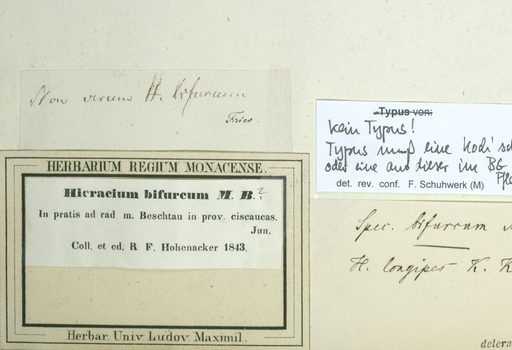 Non verum H. bifurcum
Fries.
HERBARIUM REGIUM MONACENSE.
Hieracium bifurcum M. B. ?
In pratis ad rad m. Beschtau in prov. ciscaucas.
Jun.
Coll. et ed. R F. Hohenacker 1843.
Herbar. Univ Ludov Maximil.
Typus von:
kein Typus!
Typus muß eine
oder eine aus dieser im BG
det. rev. conf. F. Schuhwerk (M)
Spec. bifurcum
H. longipes K. K
determ